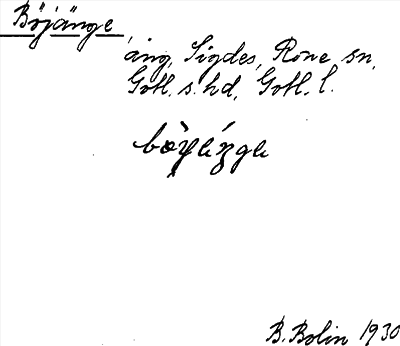 Böjänge,
äng, Sigdes, Rone sn,
Gotl. s. hd, Gotl. l.
B. Bolin 1930